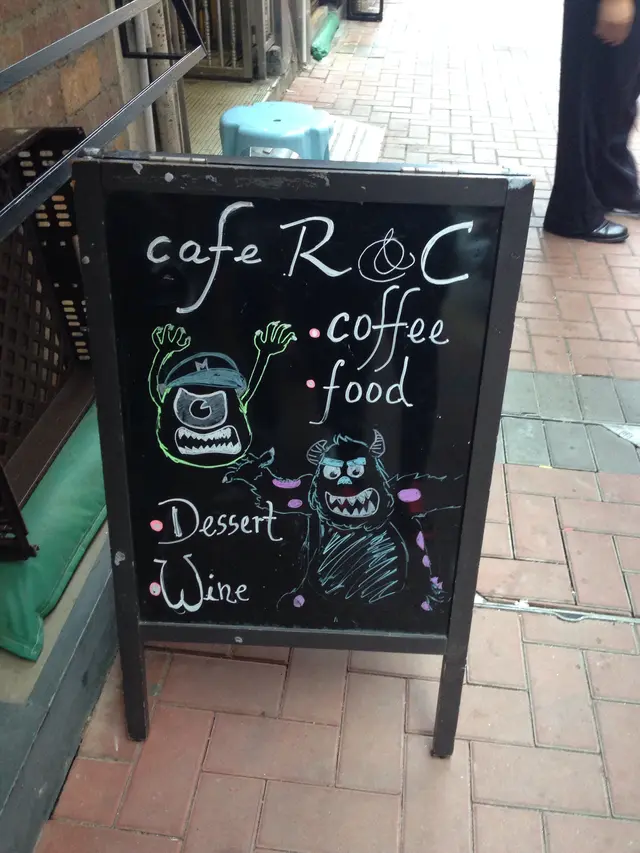 cafe R & C
• coffee
• food
M
• Dessert
• Wine